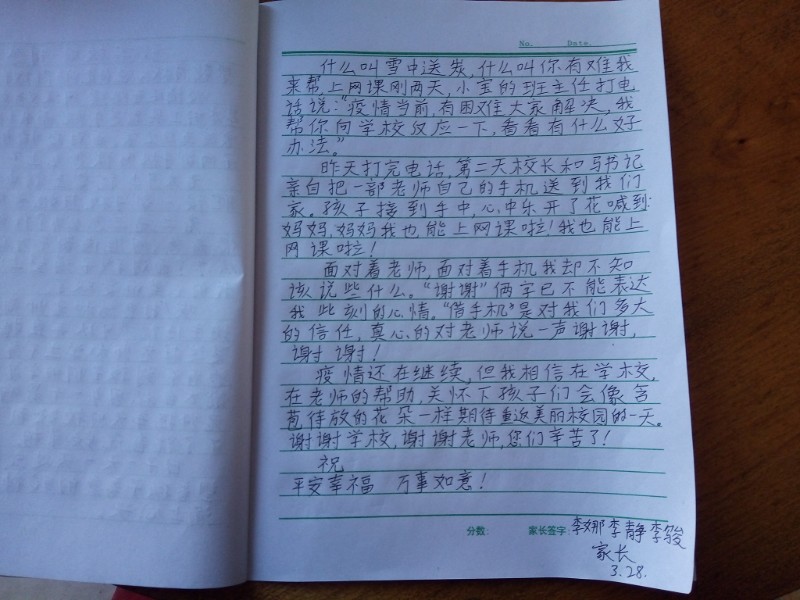 No.    Date.
什么叫雪中送炭,什么叫你有难我
来帮,上网课刚两天,小宝的班主任打电
话说:“疫情当前,有困难大家解决,我
帮你向学校反应一下,看看有什么好
办法。”
昨天打完电话,第二天校长和马书记
亲自把一部老师自己的手机送到我们
家。孩子接到手中,心中乐开了花喊到:
妈妈,妈妈我也能上网课啦!我也能上
网课啦!
面对着老师,面对着手机我却不知
该说些什么。“谢谢”俩字已不能表达
我此刻的心情。“借手机”是对我们多大
的信任,真心的对老师说一声谢谢,
谢谢!
疫情还在继续,但我相信在学校,
在老师的帮助,关怀下孩子们会像含
苞待放的花朵一样期待重返美丽校园的一天。
谢谢学校,谢谢老师,您们辛苦了!
祝
平安幸福 万事如意!
分数: 家长签字: 李娜李静李骏
家长
3.28.